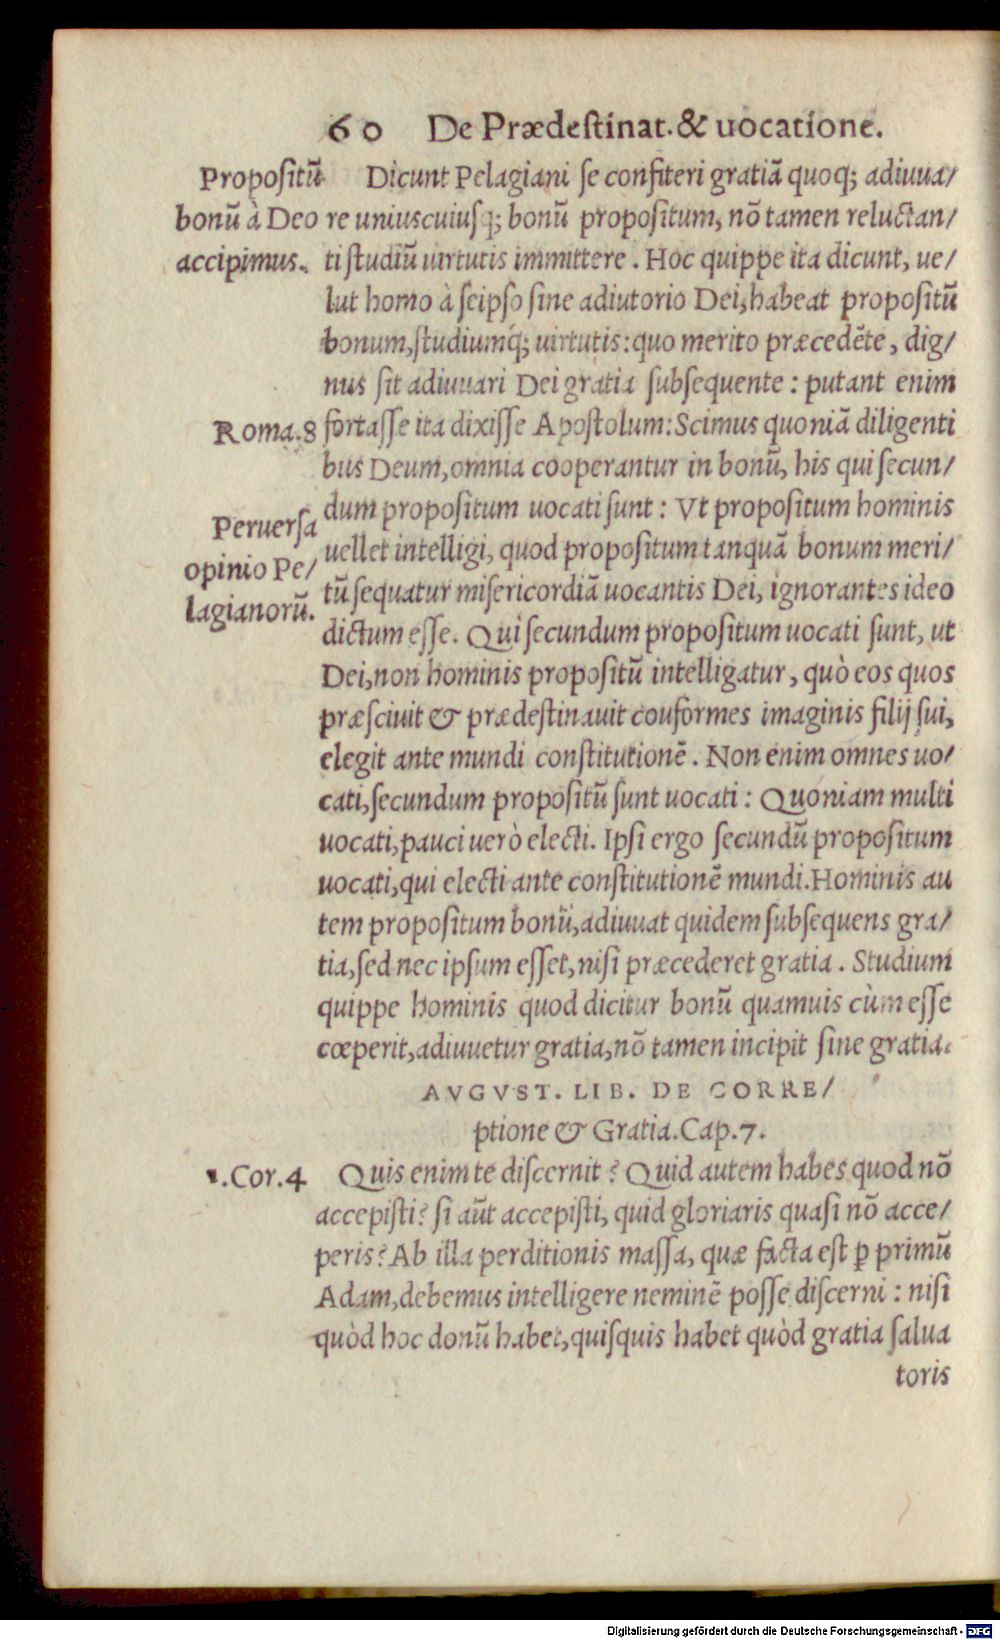 60 De Prædestinat. & uocatione.
Propositũ
bonũ à Deo
accipimus.
Dicunt Pelagiani se confiteri gratiã quoq; adiuua/
re uniuscuiusq; bonũ propositum, nõ tamen reluctan/
ti studiũ uirtutis immittere. Hoc quippe ita dicunt, ue/
lut homo à seipso sine adiutorio Dei, habeat propositũ
bonum, studiumq́; uirtutis: quo merito præcedẽte, dig/
nus sit adiuuari Dei gratia subsequente: putant enim
Roma.8
fortasse ita dixisse Apostolum: Scimus quoniã diligenti
bus Deum, omnia cooperantur in bonũ, his qui secun/
dum propositum uocati sunt: Vt propositum hominis
Peruersa
opinio Pe/
lagianorũ.
uellet intelligi, quod propositum tanquã bonum meri/
tũ sequatur misericordiã uocantis Dei, ignorantes ideo
dictum esse. Qui secundum propositum uocati sunt, ut
Dei, non hominis propositũ intelligatur, quò eos quos
præsciuit & prædestinauit couformes imaginis filij sui,
elegit ante mundi constitutionẽ. Non enim omnes uo/
cati, secundum propositũ sunt uocati: Quoniam multi
uocati, pauci uerò electi. Ipsi ergo secundũ propositum
uocati, qui electi ante constitutionẽ mundi. Hominis au
tem propositum bonũ, adiuuat quidem subsequens gra/
tia, sed nec ipsum esset, nisi præcederet gratia. Studium
quippe hominis quod dicitur bonũ quamuis cùm esse
cœperit, adiuuetur gratia, nõ tamen incipit sine gratia.
AVGVST. LIB. DE CORRE/
ptione & Gratia. Cap.7.
1.Cor.4
Quis enim te discernit? Quid autem habes quod nõ
accepisti? si aũt accepisti, quid gloriaris quasi nõ acce/
peris? Ab illa perditionis massa, quæ facta est ꝑ primũ
Adam, debemus intelligere neminẽ posse discerni: nisi
quòd hoc donũ habet, quisquis habet quòd gratia salua
toris
Digitalisierung gefördert durch die Deutsche Forschungsgemeinschaft - DFG